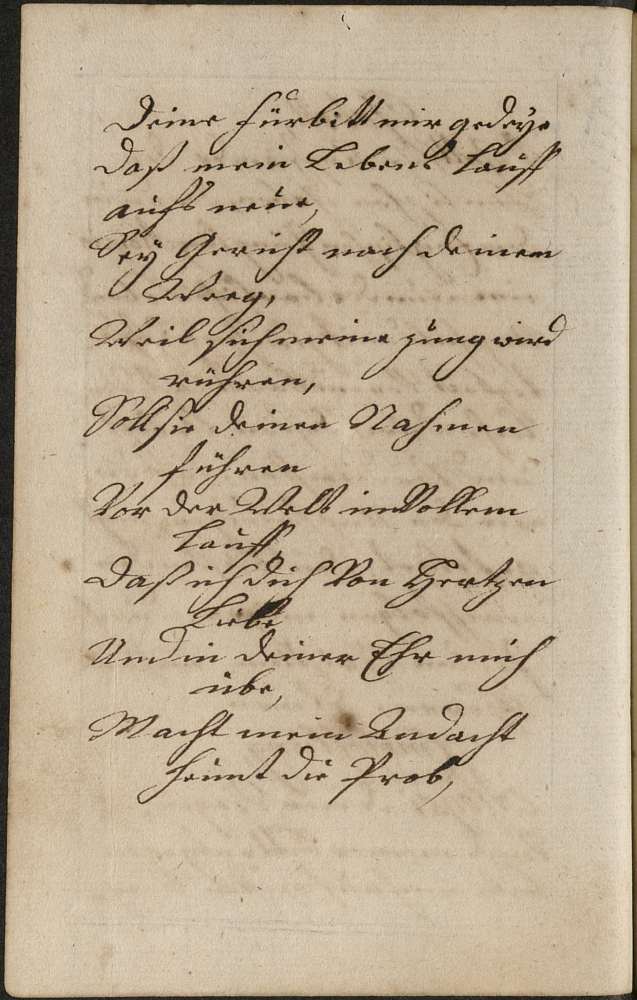 Deine fürbitt mir gedeye
daß mein Lebens lauff
aufs neue,
Sey Gericht nach deinem
Weeg,
Weil sich meine zung wird
rühren,
Soll sie deinen Nahmen
führen
Vor der Welt in Vollem
lauff,
Daß ich dich Von Hertzen
Liebe
Und in deiner Ehr mich
übe,
Macht mein Andacht
heint die Prob,